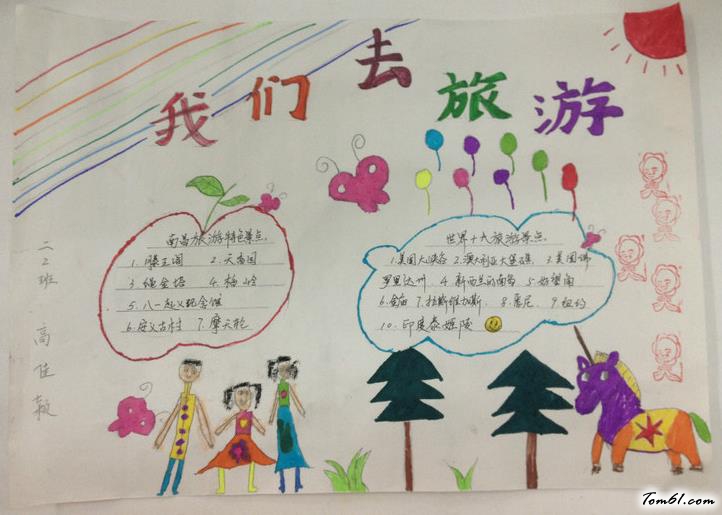 我们去旅游
南昌旅游特色景点
1.滕王阁 2.天香园
3.绳金塔 4.梅岭
5.八一起义纪念馆
6.安义古村 7.摩天轮
世界十大旅游景点
1.美国大峡谷 2.澳大利亚大堡礁 3.美国佛
罗里达州 4.新西兰的南岛 5.好望角
6.金庙 7.拉斯维加斯 8.悉尼 9.纽约
10.印度泰姬陵
二2班 高佳颖
Tom61.com